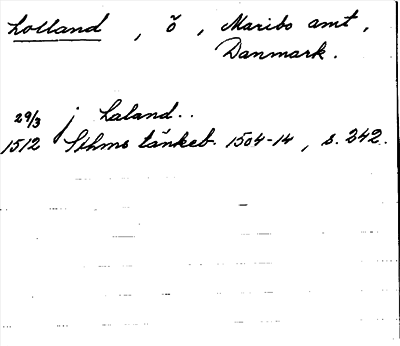 Lolland, ö, Maribo amt,
Danmark.
29/3
1512 j Laland..
Sthms tänkeb. 1504-14, s. 242.